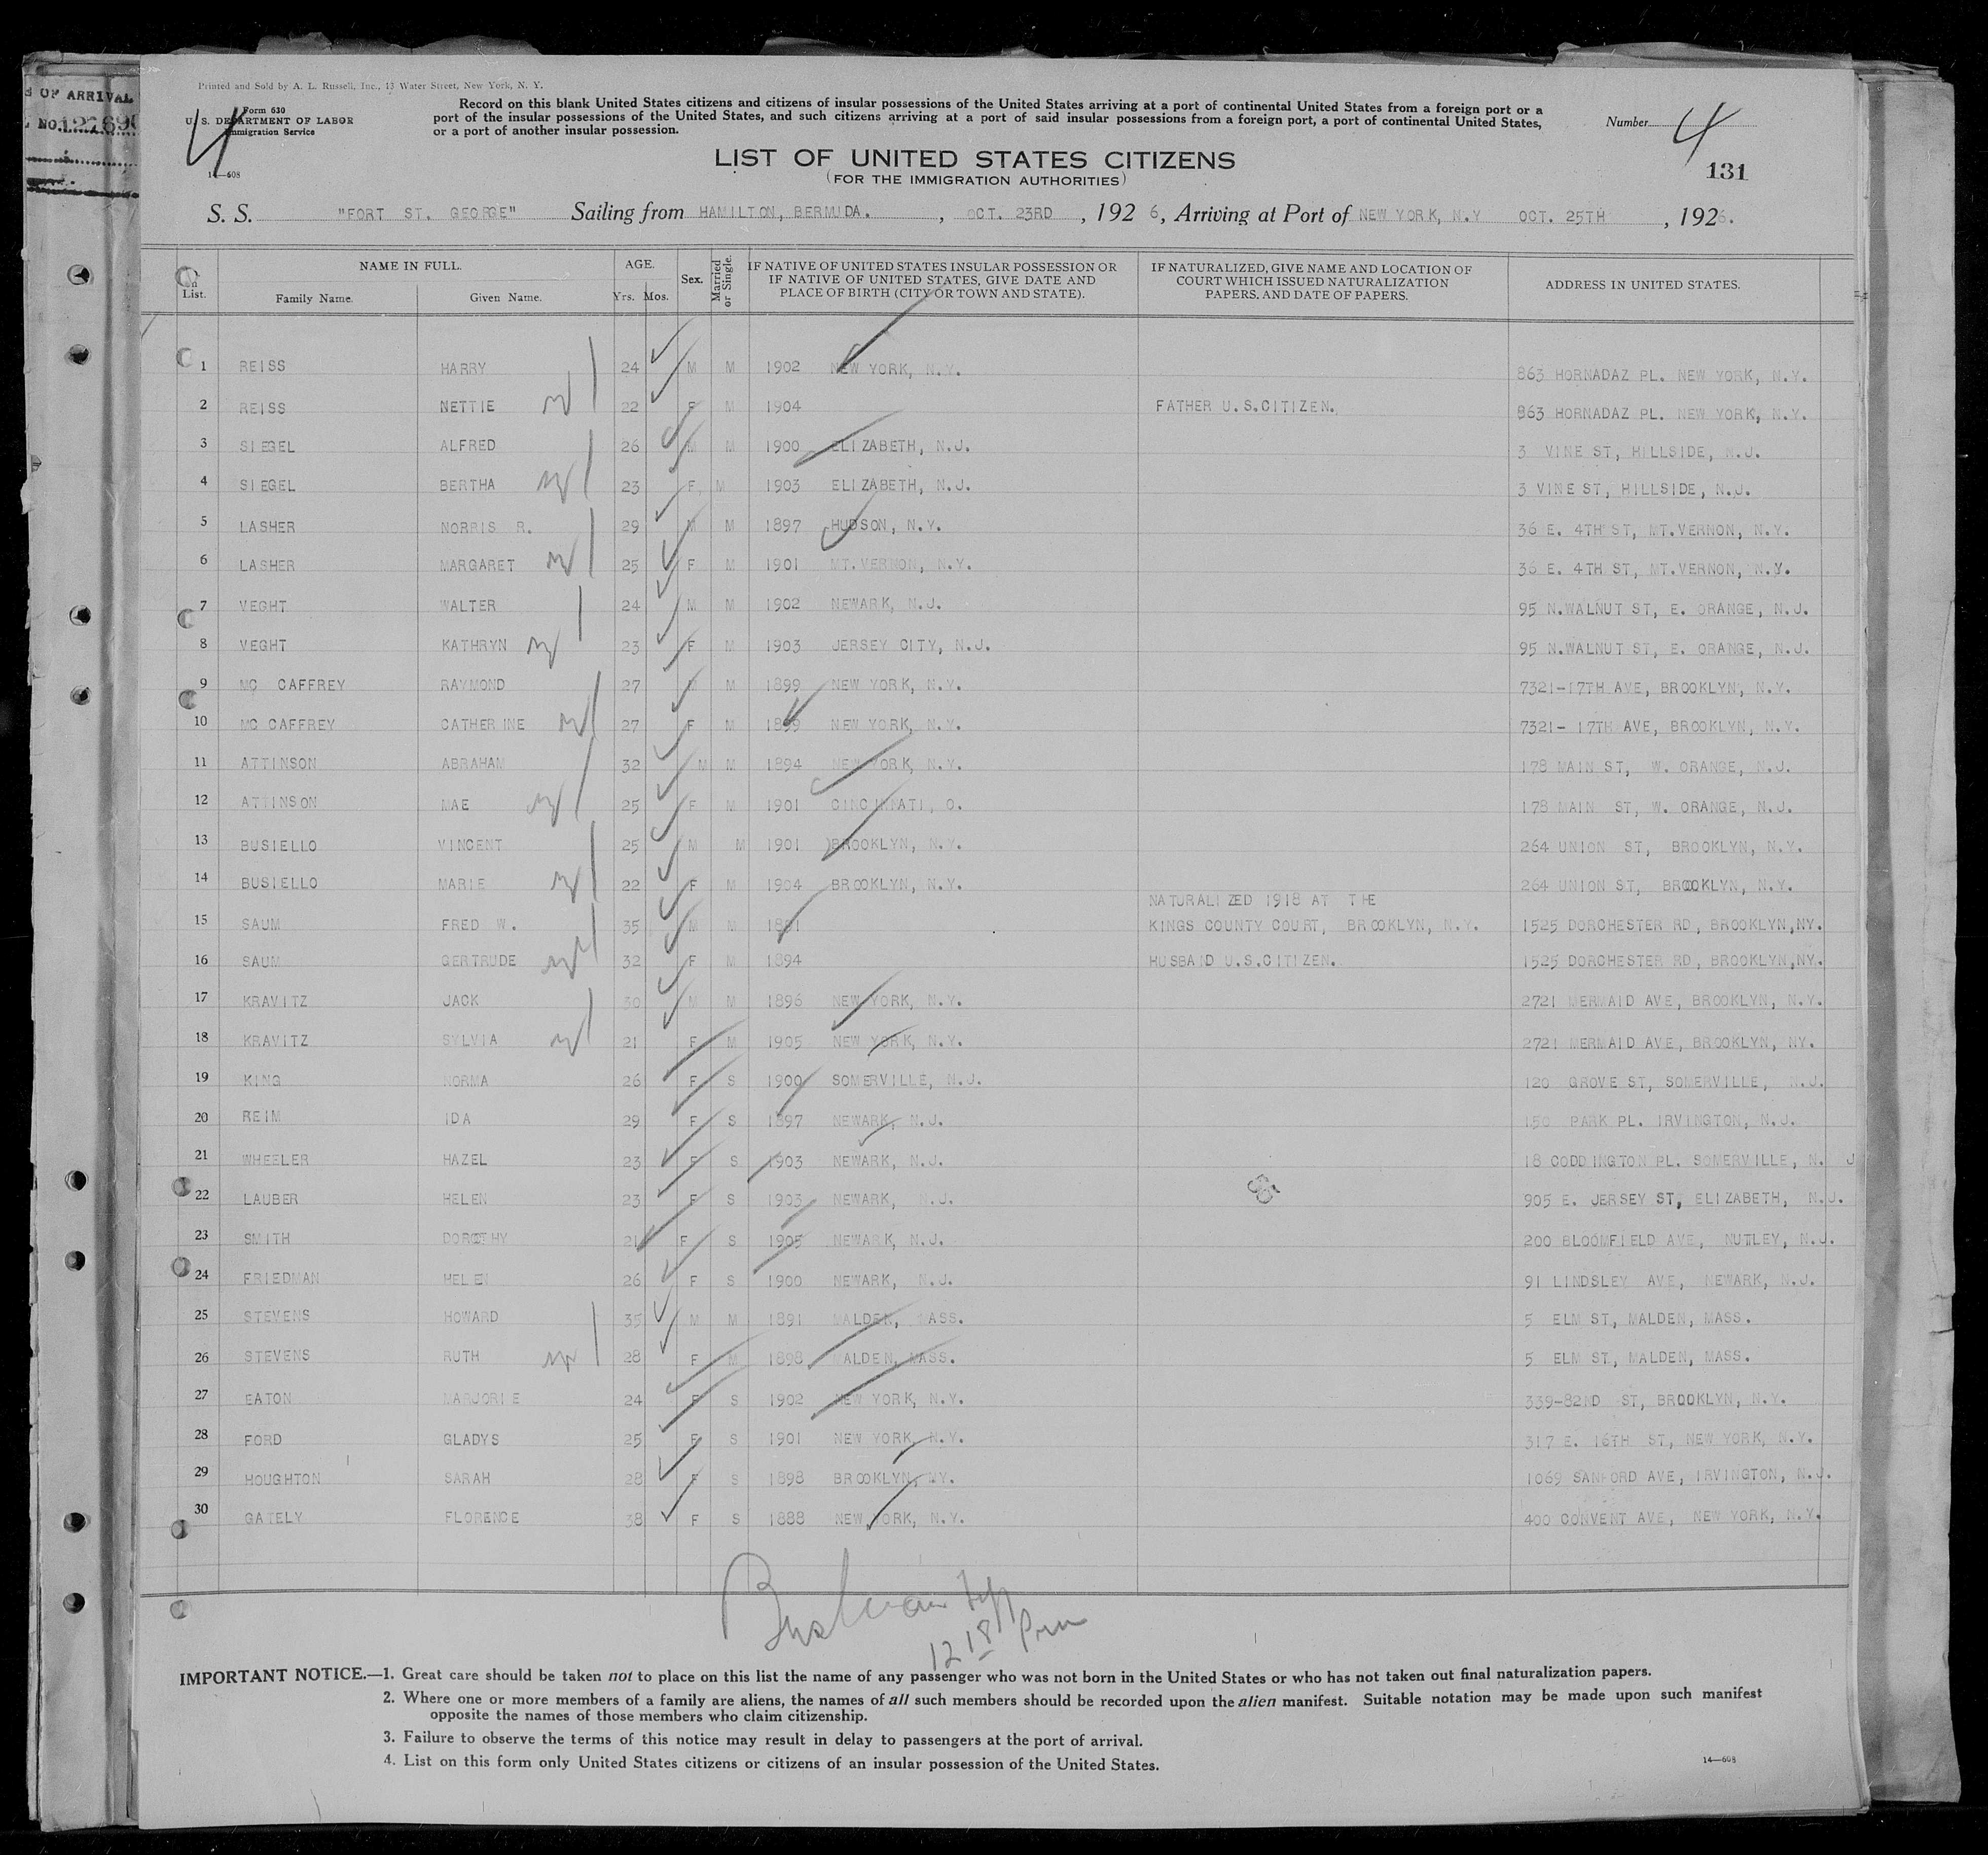 E OF ARRIVAL
NO. 12769
Printed and Sold by A. L. Russell, Inc., 13 Water Street, New York, N. Y.
Form 630
U. S. DEPARTMENT OF LABOR
Immigration Service
14—608
4
Record on this blank United States citizens and citizens of insular possessions of the United States arriving at a port of continental United States from a foreign port or a
port of the insular possessions of the United States, and such citizens arriving at a port of said insular possessions from a foreign port, a port of continental United States,
or a port of another insular possession.
Number 4
131
LIST OF UNITED STATES CITIZENS
(FOR THE IMMIGRATION AUTHORITIES)
S. S. "FORT ST. GEORGE" Sailing from HAMILTON, BERMUDA. , OCT. 23RD , 192 6, Arriving at Port of NEW YORK, N.Y OCT. 25TH , 1926.
List. NAME IN FULL. Family Name. Given Name. AGE. Yrs. Mos. Sex. Married or Single. IF NATIVE OF UNITED STATES INSULAR POSSESSION OR IF NATIVE OF UNITED STATES, GIVE DATE AND PLACE OF BIRTH (CITY OR TOWN AND STATE). IF NATURALIZED, GIVE NAME AND LOCATION OF COURT WHICH ISSUED NATURALIZATION PAPERS, AND DATE OF PAPERS. ADDRESS IN UNITED STATES.
1 REISS HARRY 24 M M 1902 NEW YORK, N.Y. 863 HORNADAZ PL. NEW YORK, N.Y.
2 REISS NETTIE 22 F M 1904 FATHER U.S.CITIZEN. 863 HORNADAZ PL. NEW YORK, N.Y.
3 SIEGEL ALFRED 26 M M 1900 ELIZABETH, N.J. 3 VINE ST, HILLSIDE, N.J.
4 SIEGEL BERTHA 23 F, M 1903 ELIZABETH, N.J. 3 VINE ST, HILLSIDE, N.J.
5 LASHER NORRIS R. 29 M M 1897 HUDSON, N.Y. 36 E. 4TH ST, MT.VERNON, N.Y.
6 LASHER MARGARET 25 F M 1901 MT.VERNON, N.Y. 36 E. 4TH ST, MT.VERNON, N.Y.
7 VEGHT WALTER 24 M M 1902 NEWARK, N.J. 95 N.WALNUT ST, E. ORANGE, N.J.
8 VEGHT KATHRYN 23 F M 1903 JERSEY CITY, N.J. 95 N.WALNUT ST, E. ORANGE, N.J.
9 MC CAFFREY RAYMOND 27 M M 1899 NEW YORK, N.Y. 7321-17TH AVE, BROOKLYN, N.Y.
10 MC CAFFREY CATHERINE 27 F M 1899 NEW YORK, N.Y. 7321- 17TH AVE, BROOKLYN, N.Y.
11 ATTINSON ABRAHAM 32 M M 1894 NEW YORK, N.Y. 178 MAIN ST, W. ORANGE, N.J.
12 ATTINSON MAE 25 F M 1901 CINCINNATI, O. 178 MAIN ST, W. ORANGE, N.J.
13 BUSIELLO VINCENT 25 M M 1901 )BROOKLYN, N.Y. 264 UNION ST, BROOKLYN, N.Y.
14 BUSIELLO MARIE 22 F M 1904 BROOKLYN, N.Y. 264 UNION ST, BROOKLYN, N.Y.
NATURALIZED 1918 AT THE
15 SAUM FRED W. 35 M M 1891 KINGS COUNTY COURT, BROOKLYN, N.Y. 1525 DORCHESTER RD, BROOKLYN,NY.
16 SAUM GERTRUDE 32 F M 1894 HUSBAND U.S.CITIZEN. 1525 DORCHESTER RD, BROOKLYN,NY.
17 KRAVITZ JACK 30 M M 1896 NEW YORK, N.Y. 2721 MERMAID AVE, BROOKLYN, N.Y.
18 KRAVITZ SYLVIA 21 F M 1905 NEW YORK, N.Y. 2721 MERMAID AVE, BROOKLYN, NY.
19 KING NORMA 26 F S 1900 SOMERVILLE, N.J. 120 GROVE ST, SOMERVILLE, N.J.
20 REIM IDA 29 F S 1897 NEWARK, N.J. 150 PARK PL. IRVINGTON, N.J.
21 WHEELER HAZEL 23 F S 1903 NEWARK, N.J. 18 CODDINGTON PL. SOMERVILLE, N. J
22 LAUBER HELEN 23 F S 1903 NEWARK, N.J. 905 E. JERSEY ST, ELIZABETH, N.J.
23 SMITH DOROTHY 21 F S 1905 NEWARK, N.J. 200 BLOOMFIELD AVE, NUTLEY, N.J.
24 FRIEDMAN HELEN 26 F S 1900 NEWARK, N.J. 91 LINDSLEY AVE, NEWARK, N.J.
25 STEVENS HOWARD 35 M M 1891 MALDEN, MASS. 5 ELM ST, MALDEN, MASS.
26 STEVENS RUTH 28 F M 1898 MALDEN, MASS. 5 ELM ST, MALDEN, MASS.
27 EATON MARJORIE 24 F S 1902 NEW YORK, N.Y. 339-82ND ST, BROOKLYN, N.Y.
28 FORD GLADYS 25 F S 1901 NEW YORK, N.Y. 317 E. 16TH ST, NEW YORK, N.Y.
29 HOUGHTON SARAH 28 F S 1898 BROOKLYN, NY. 1069 SANFORD AVE, IRVINGTON, N.J.
30 GATELY FLORENCE 38 F S 1888 NEW YORK, N.Y. 400 CONVENT AVE, NEW YORK, N.Y.
12 18 Pm
IMPORTANT NOTICE.—1. Great care should be taken not to place on this list the name of any passenger who was not born in the United States or who has not taken out final naturalization papers.
2. Where one or more members of a family are aliens, the names of all such members should be recorded upon the alien manifest. Suitable notation may be made upon such manifest
opposite the names of those members who claim citizenship.
3. Failure to observe the terms of this notice may result in delay to passengers at the port of arrival.
4. List on this form only United States citizens or citizens of an insular possession of the United States.
14—608